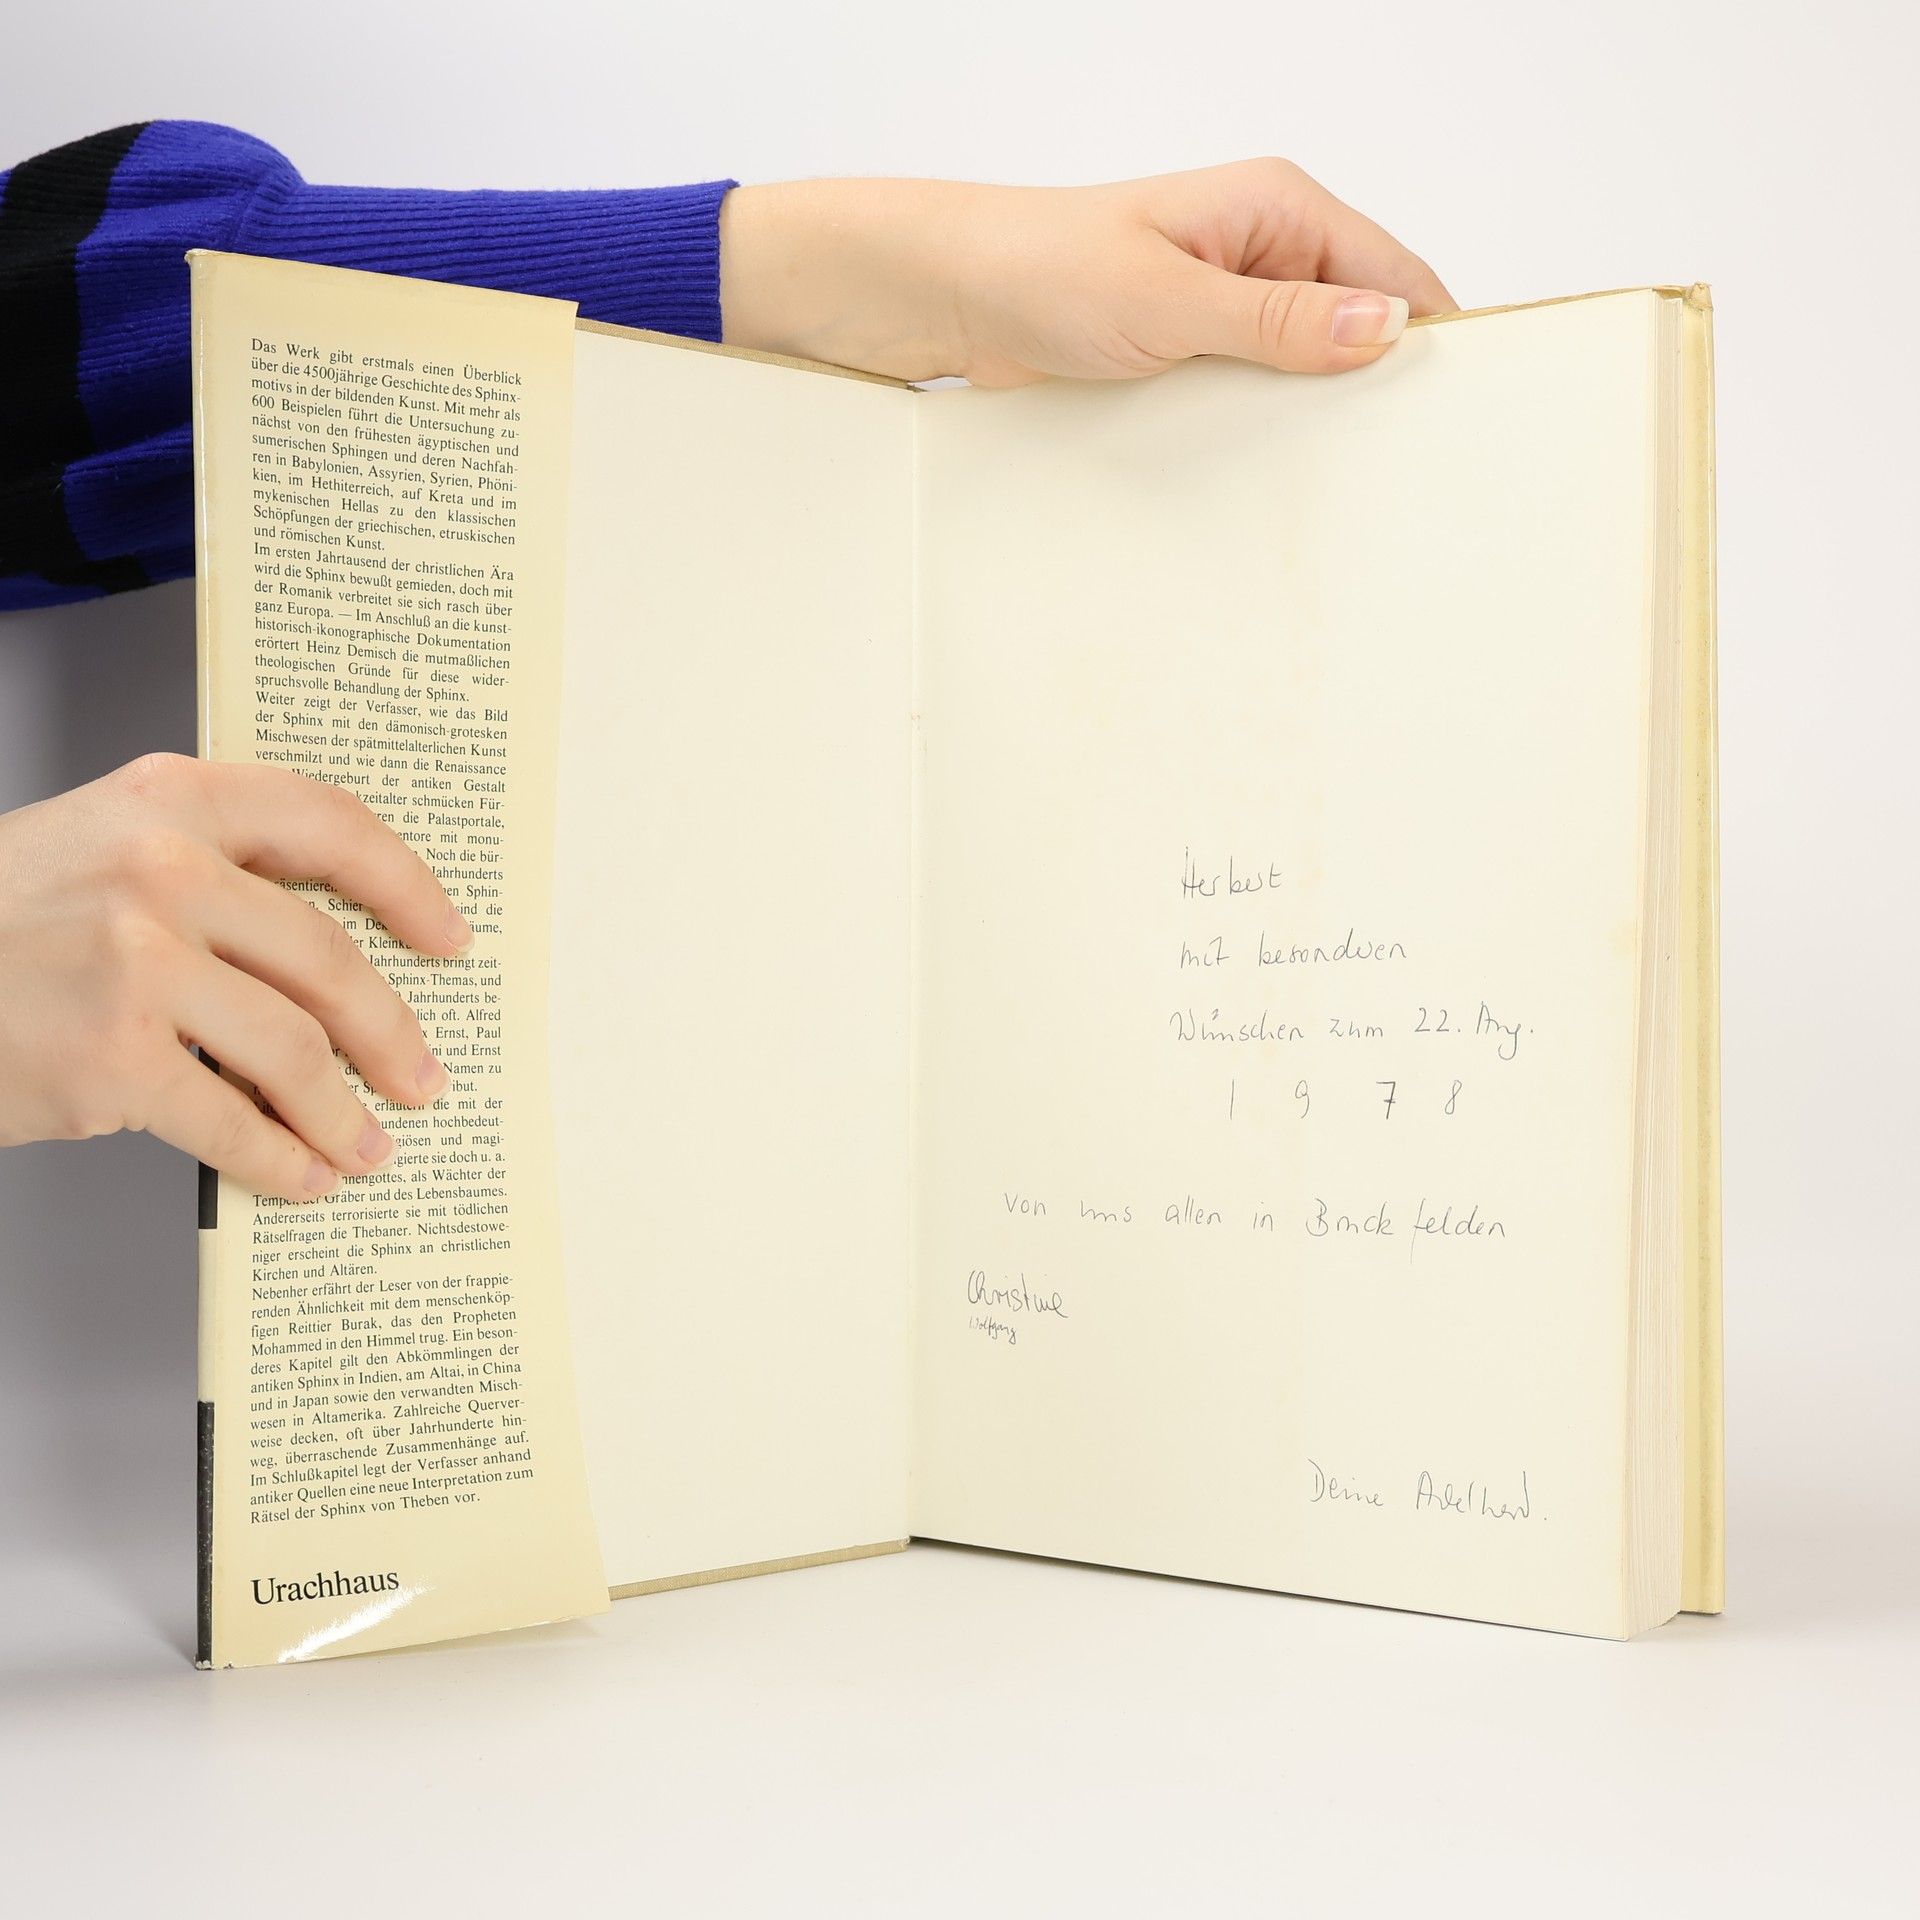 Das Werk gibt erstmals einen Überblick
über die 4500jährige Geschichte des Sphinx-
motivs in der bildenden Kunst. Mit mehr als
600 Beispielen führt die Untersuchung zu-
nächst von den frühesten ägyptischen und
sumerischen Sphingen und deren Nachfah-
ren in Babylonien, Assyrien, Syrien, Phöni-
kien, im Hethiterreich, auf Kreta und im
mykenischen Hellas zu den klassischen
Schöpfungen der griechischen, etruskischen
und römischen Kunst.
Im ersten Jahrtausend der christlichen Ära
wird die Sphinx bewußt gemieden, doch mit
der Romanik verbreitet sie sich rasch über
ganz Europa. — Im Anschluß an die kunst-
historisch-ikonographische Dokumentation
erörtert Heinz Demisch die mutmaßlichen
theologischen Gründe für diese wider-
spruchsvolle Behandlung der Sphinx.
Weiter zeigt der Verfasser, wie das Bild
der Sphinx mit den dämonisch-grotesken
Mischwesen der spätmittelalterlichen Kunst
verschmilzt und wie dann die Renaissance
Wiedergeburt der antiken Gestalt
kzeitalter schmücken Für-
ren die Palastportale,
entore mit monu-
Noch die bür-
Jahrhunderts
räsentieren en Sphin-
Schier sind die
im Dek äume,
er Kleinku
Jahrhunderts bringt zeit-
Sphinx-Themas, und
Jahrhunderts be-
lich oft. Alfred
x Ernst, Paul
ini und Ernst
die Namen zu
er Sp ribut.
erläutern die mit der
undenen hochbedeut-
giösen und magi-
gierte sie doch u. a.
nnengottes, als Wächter der
Tempel, der Gräber und des Lebensbaumes.
Andererseits terrorisierte sie mit tödlichen
Rätselfragen die Thebaner. Nichtsdestowe-
niger erscheint die Sphinx an christlichen
Kirchen und Altären.
Nebenher erfährt der Leser von der frappie-
renden Ähnlichkeit mit dem menschenköp-
figen Reittier Burak, das den Propheten
Mohammed in den Himmel trug. Ein beson-
deres Kapitel gilt den Abkömmlingen der
antiken Sphinx in Indien, am Altai, in China
und in Japan sowie den verwandten Misch-
wesen in Altamerika. Zahlreiche Querver-
weise decken, oft über Jahrhunderte hin-
weg, überraschende Zusammenhänge auf.
Im Schlußkapitel legt der Verfasser anhand
antiker Quellen eine neue Interpretation zum
Rätsel der Sphinx von Theben vor.
Urachhaus
Herbert
mit besonderen
Wünschen zum 22. Aug.
1 9 7 8
von uns allen in Bruckfelden
Christine
Wolfgang
Deine Adelherd.